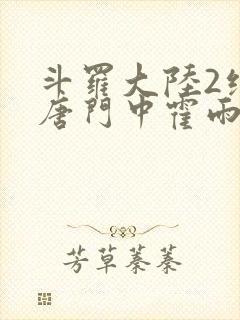 斗羅大陸2
唐門中霍雨
芳草蓁蓁